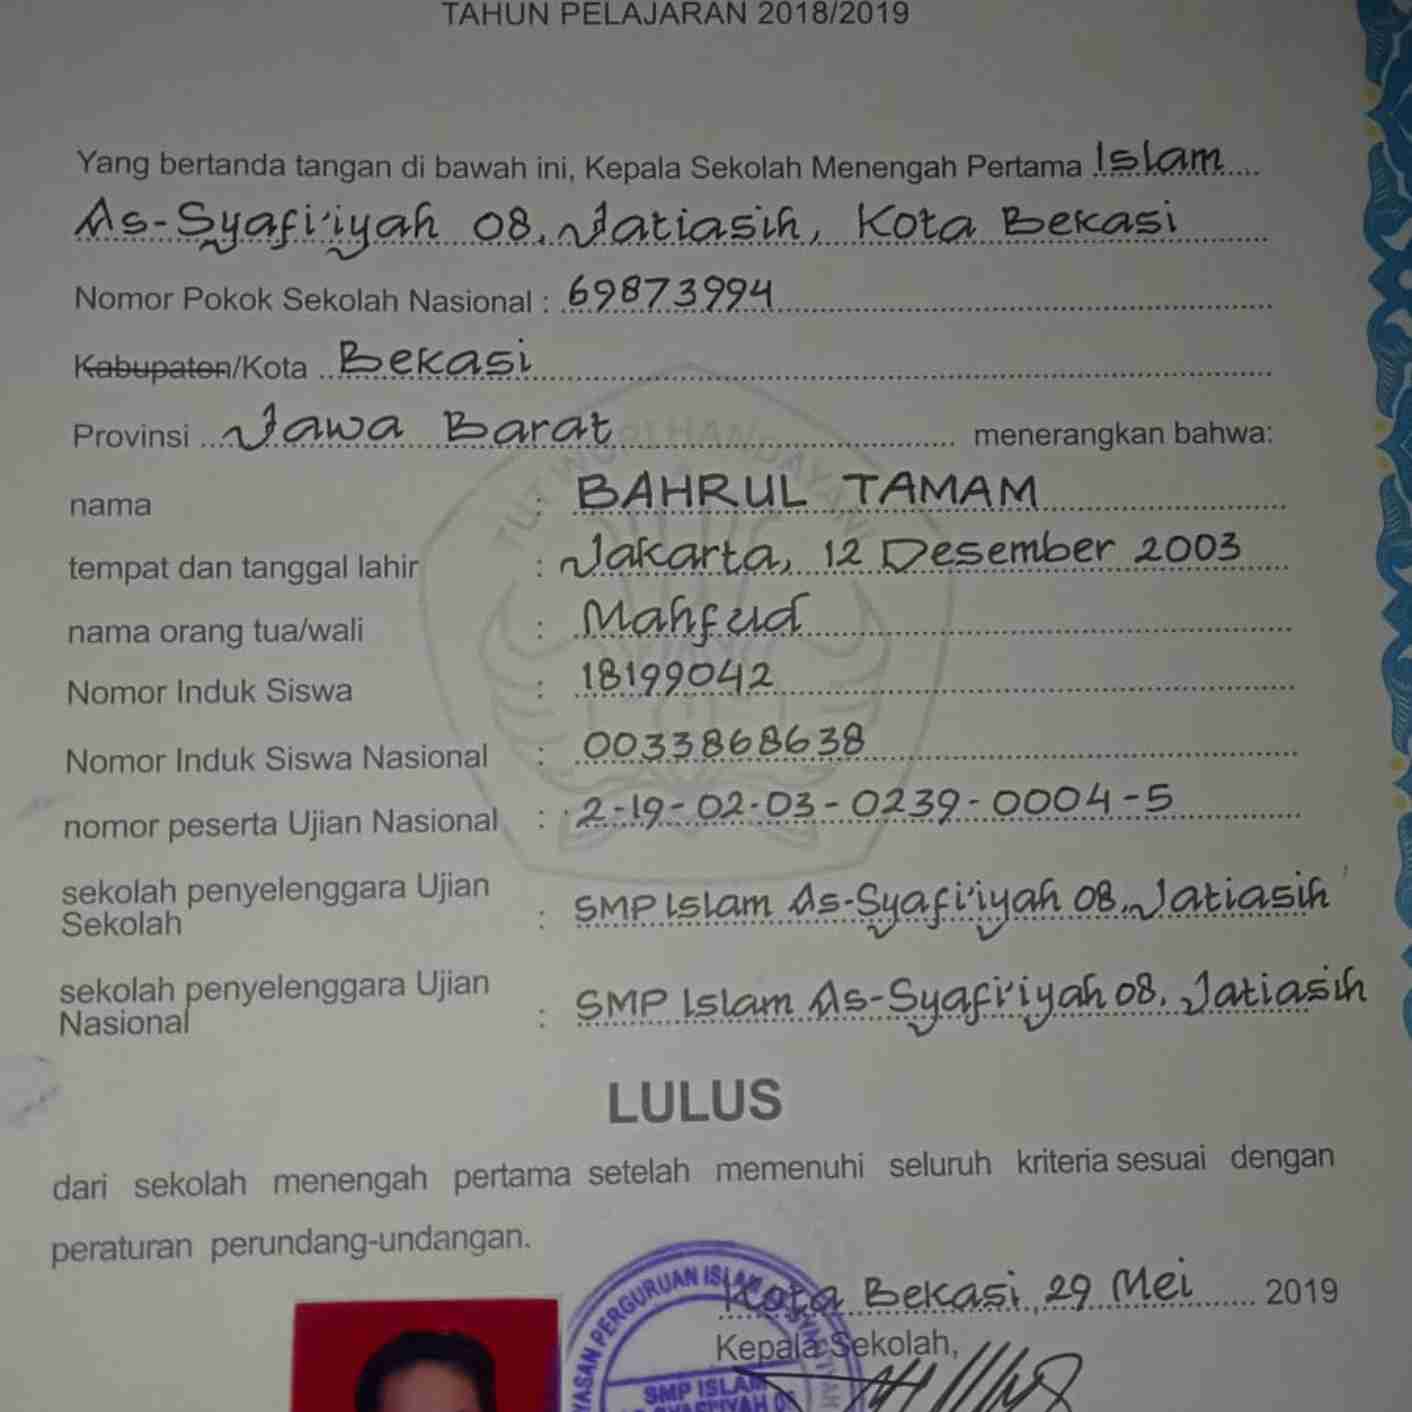 TAHUN PELAJARAN 2018/2019
Yang bertanda tangan di bawah ini, Kepala Sekolah Menengah Pertama Islam
As-Syafi'iyah 08, Jatiasih, Kota Bekasi
Nomor Pokok Sekolah Nasional : 69873994
Kabupaten/Kota Bekasi
Provinsi Jawa Barat menerangkan bahwa:
TUT WURI HANDAYANI
nama : BAHRUL TAMAM
tempat dan tanggal lahir : Jakarta, 12 Desember 2003
nama orang tua/wali : Mahfud
Nomor Induk Siswa : 18199042
Nomor Induk Siswa Nasional : 0033868638
nomor peserta Ujian Nasional : 2-19-02-03-0239-0004-5
sekolah penyelenggara Ujian
Sekolah : SMP Islam As-Syafi'iyah 08, Jatiasih
sekolah penyelenggara Ujian
Nasional : SMP Islam As-Syafi'iyah 08, Jatiasih
LULUS
dari sekolah menengah pertama setelah memenuhi seluruh kriteria sesuai dengan
peraturan perundang-undangan.
Kota Bekasi, 29 Mei 2019
Kepala Sekolah,
PERGURUAN
SMP ISLAM